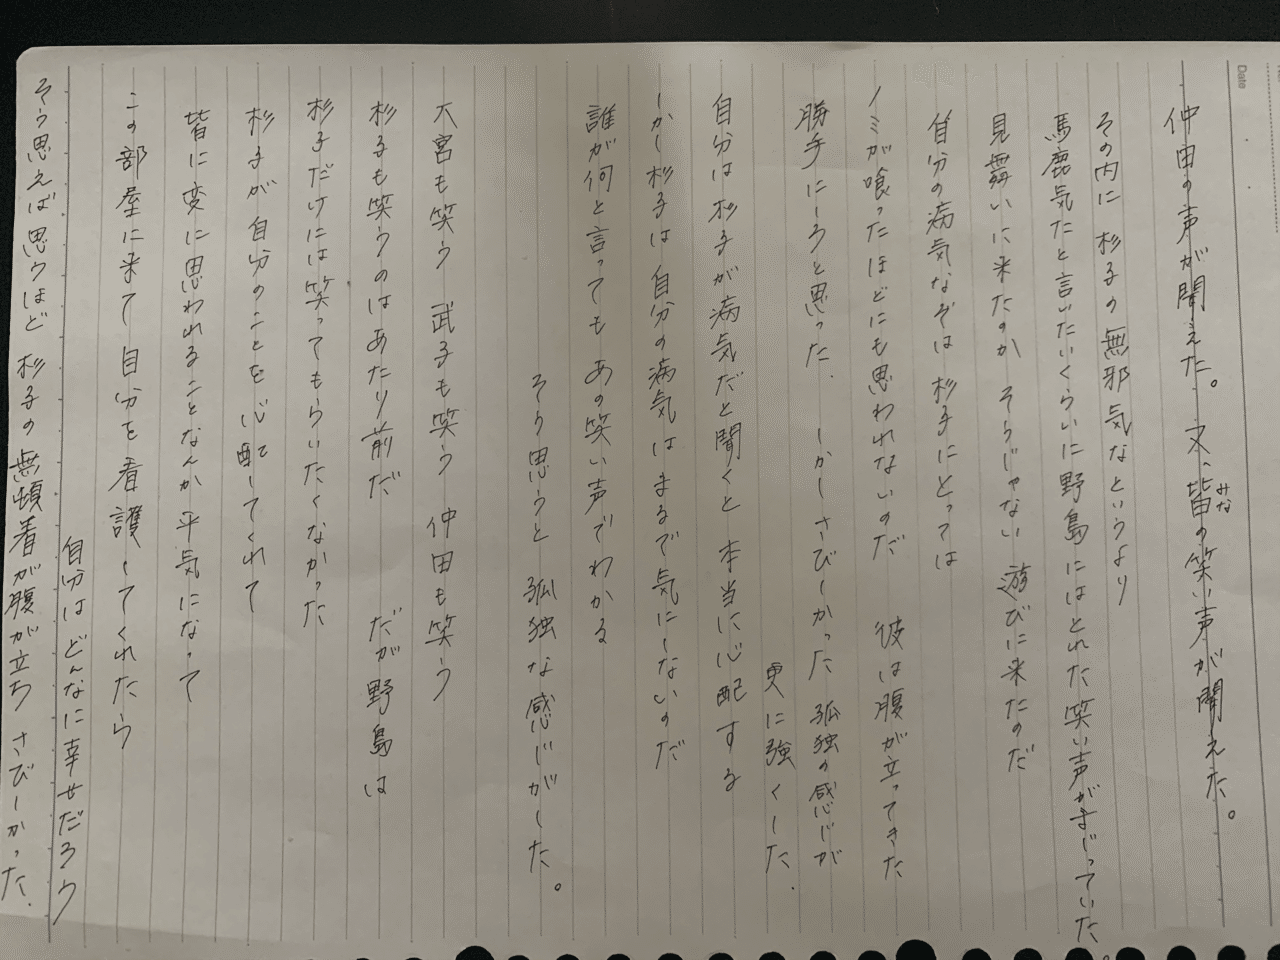 Date
仲田の声が聞えた。又、皆の笑い声が聞えた。
みな
その内に 杉子の無邪気なというより
馬鹿気たと言いたいくらいに野島にはとれた笑い声がまじっていた。
見舞いに来たのか そうじゃない 遊びに来たのだ
自分の病気なぞは 杉子にとっては
ノミが喰ったほどにも思われないのだ 彼は腹が立ってきた
勝手にしろと思った. しかしさびしかった 孤独の感じが
更に強くした.
自分は杉子が病気だと聞くと 本当に心配する
しかし杉子は 自分の病気はまるで気にしないのだ
誰が何と言っても あの笑い声でわかる
そう思うと 孤独な感じがした。
大宮も笑う 武子も笑う 仲田も笑う
杉子も笑うのはあたり前だ だが野島は
杉子だけには笑ってもらいたくなかった
杉子が自分のことを心配してくれて
皆に変に思われることなんか平気になって
この部屋に来て 自分を看護してくれたら
自分はどんなに幸せだろう
そう思えば思うほど 杉子の無頓着が腹が立ち さびしかった.